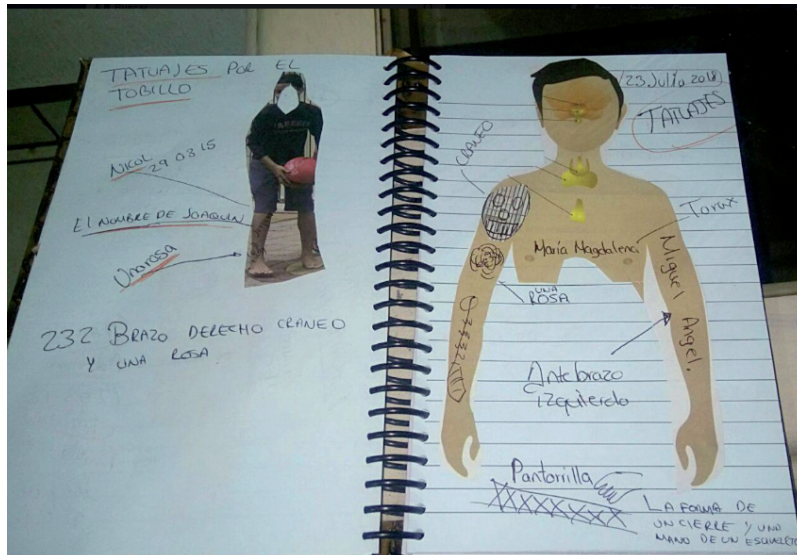 TATUAJES POR EL
TOBILLO
NICOL 29 08 15
EL NOMBRE DE JOAQUIN
Una rosa
232 BRAZO DERECHO CRANEO
Y UNA ROSA
23 Julio 2018
TATUAJES
CRANEO
Torax
María Magdalena
Miguel
Angel.
UNA
ROSA
Antebrazo
izquierdo
Pantorrilla
LA FORMA DE
UN CIERRE Y UNO
MANO DE UN ESQUELETO